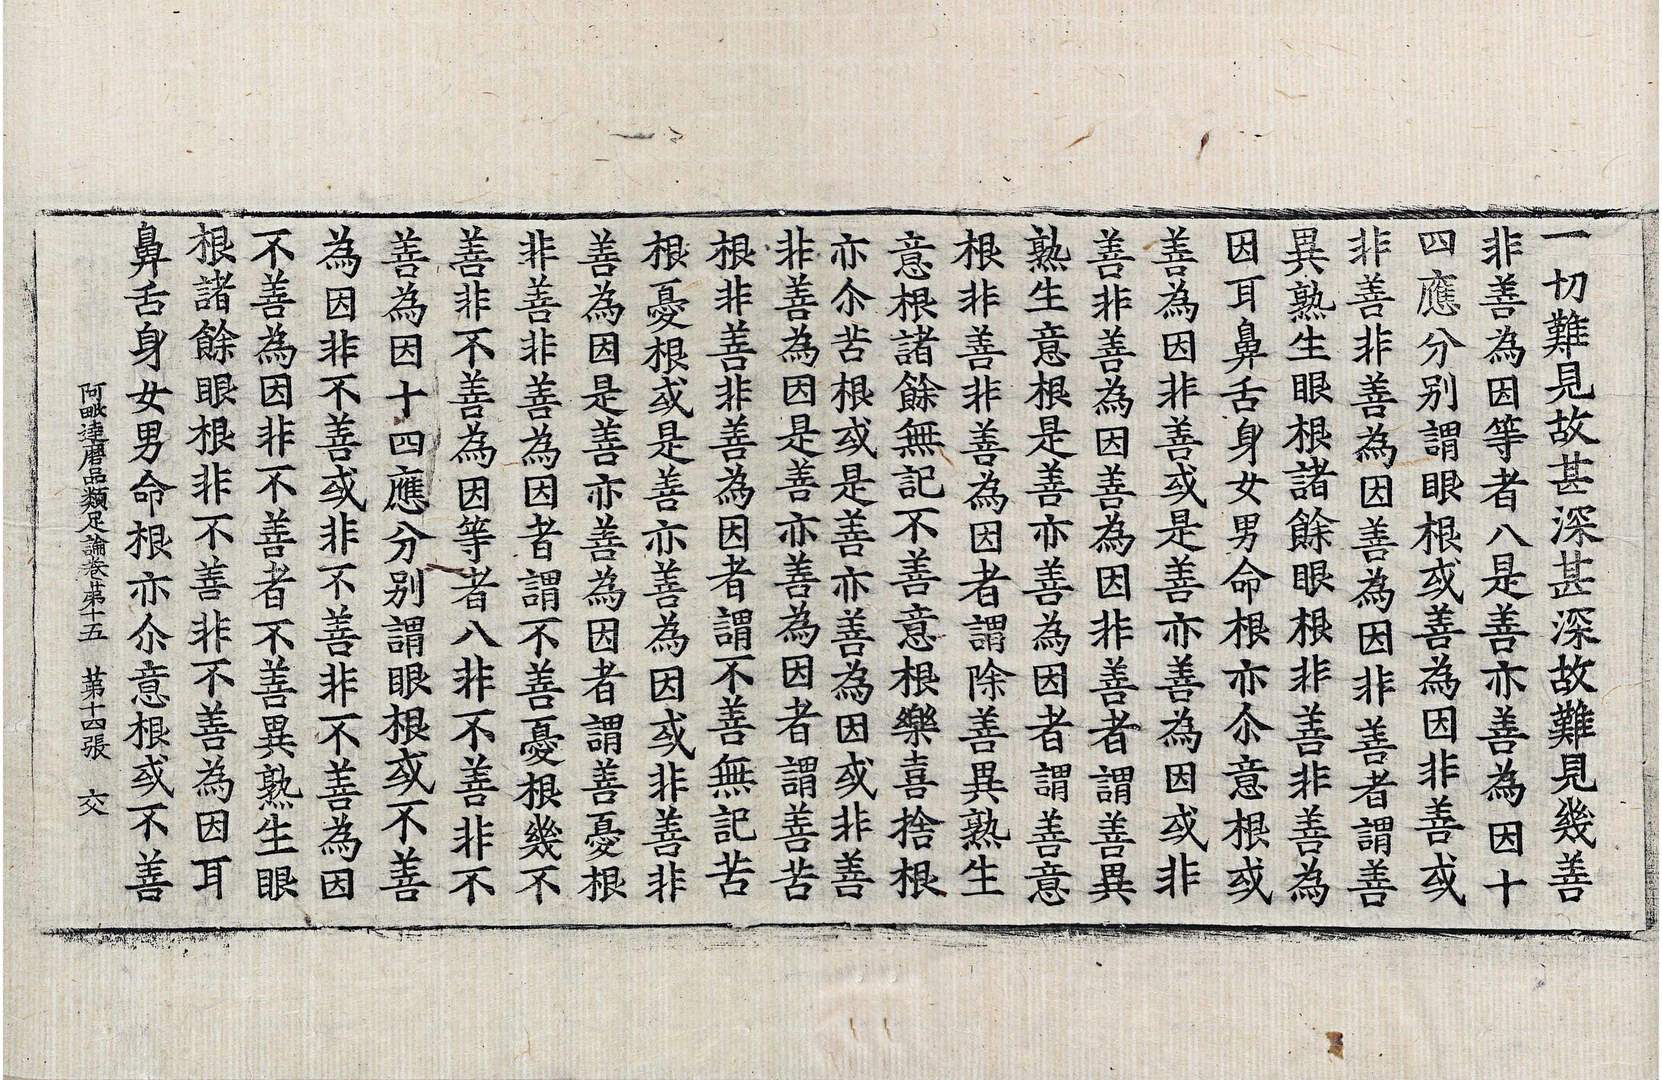 一切難見故甚深甚深故難見幾善
非善為因等者八是善亦善為因十
四應分別謂眼根或善為因非善或
非善非善為因善為因非善者謂善
異熟生眼根諸餘眼根非善非善為
因耳鼻舌身女男命根亦尒意根或
善為因非善或是善亦善為因或非
善非善為因善為因非善者謂善異
熟生意根是善亦善為因者謂善意
根非善非善為因者謂除善異熟生
意根諸餘無記不善意根樂喜捨根
亦尒苦根或是善亦善為因或非善
非善為因是善亦善為因者謂善苦
根非善非善為因者謂不善無記苦
根憂根或是善亦善為因或非善非
善為因是善亦善為因者謂善憂根
非善非善為因者謂不善憂根幾不
善非不善為因等者八非不善非不
善為因十四應分別謂眼根或不善
為因非不善或非不善非不善為因
不善為因非不善者不善異熟生眼
根諸餘眼根非不善非不善為因耳
鼻舌身女男命根亦尒意根或不善
阿毗達磨品類足論卷苐十五　苐十四張　交